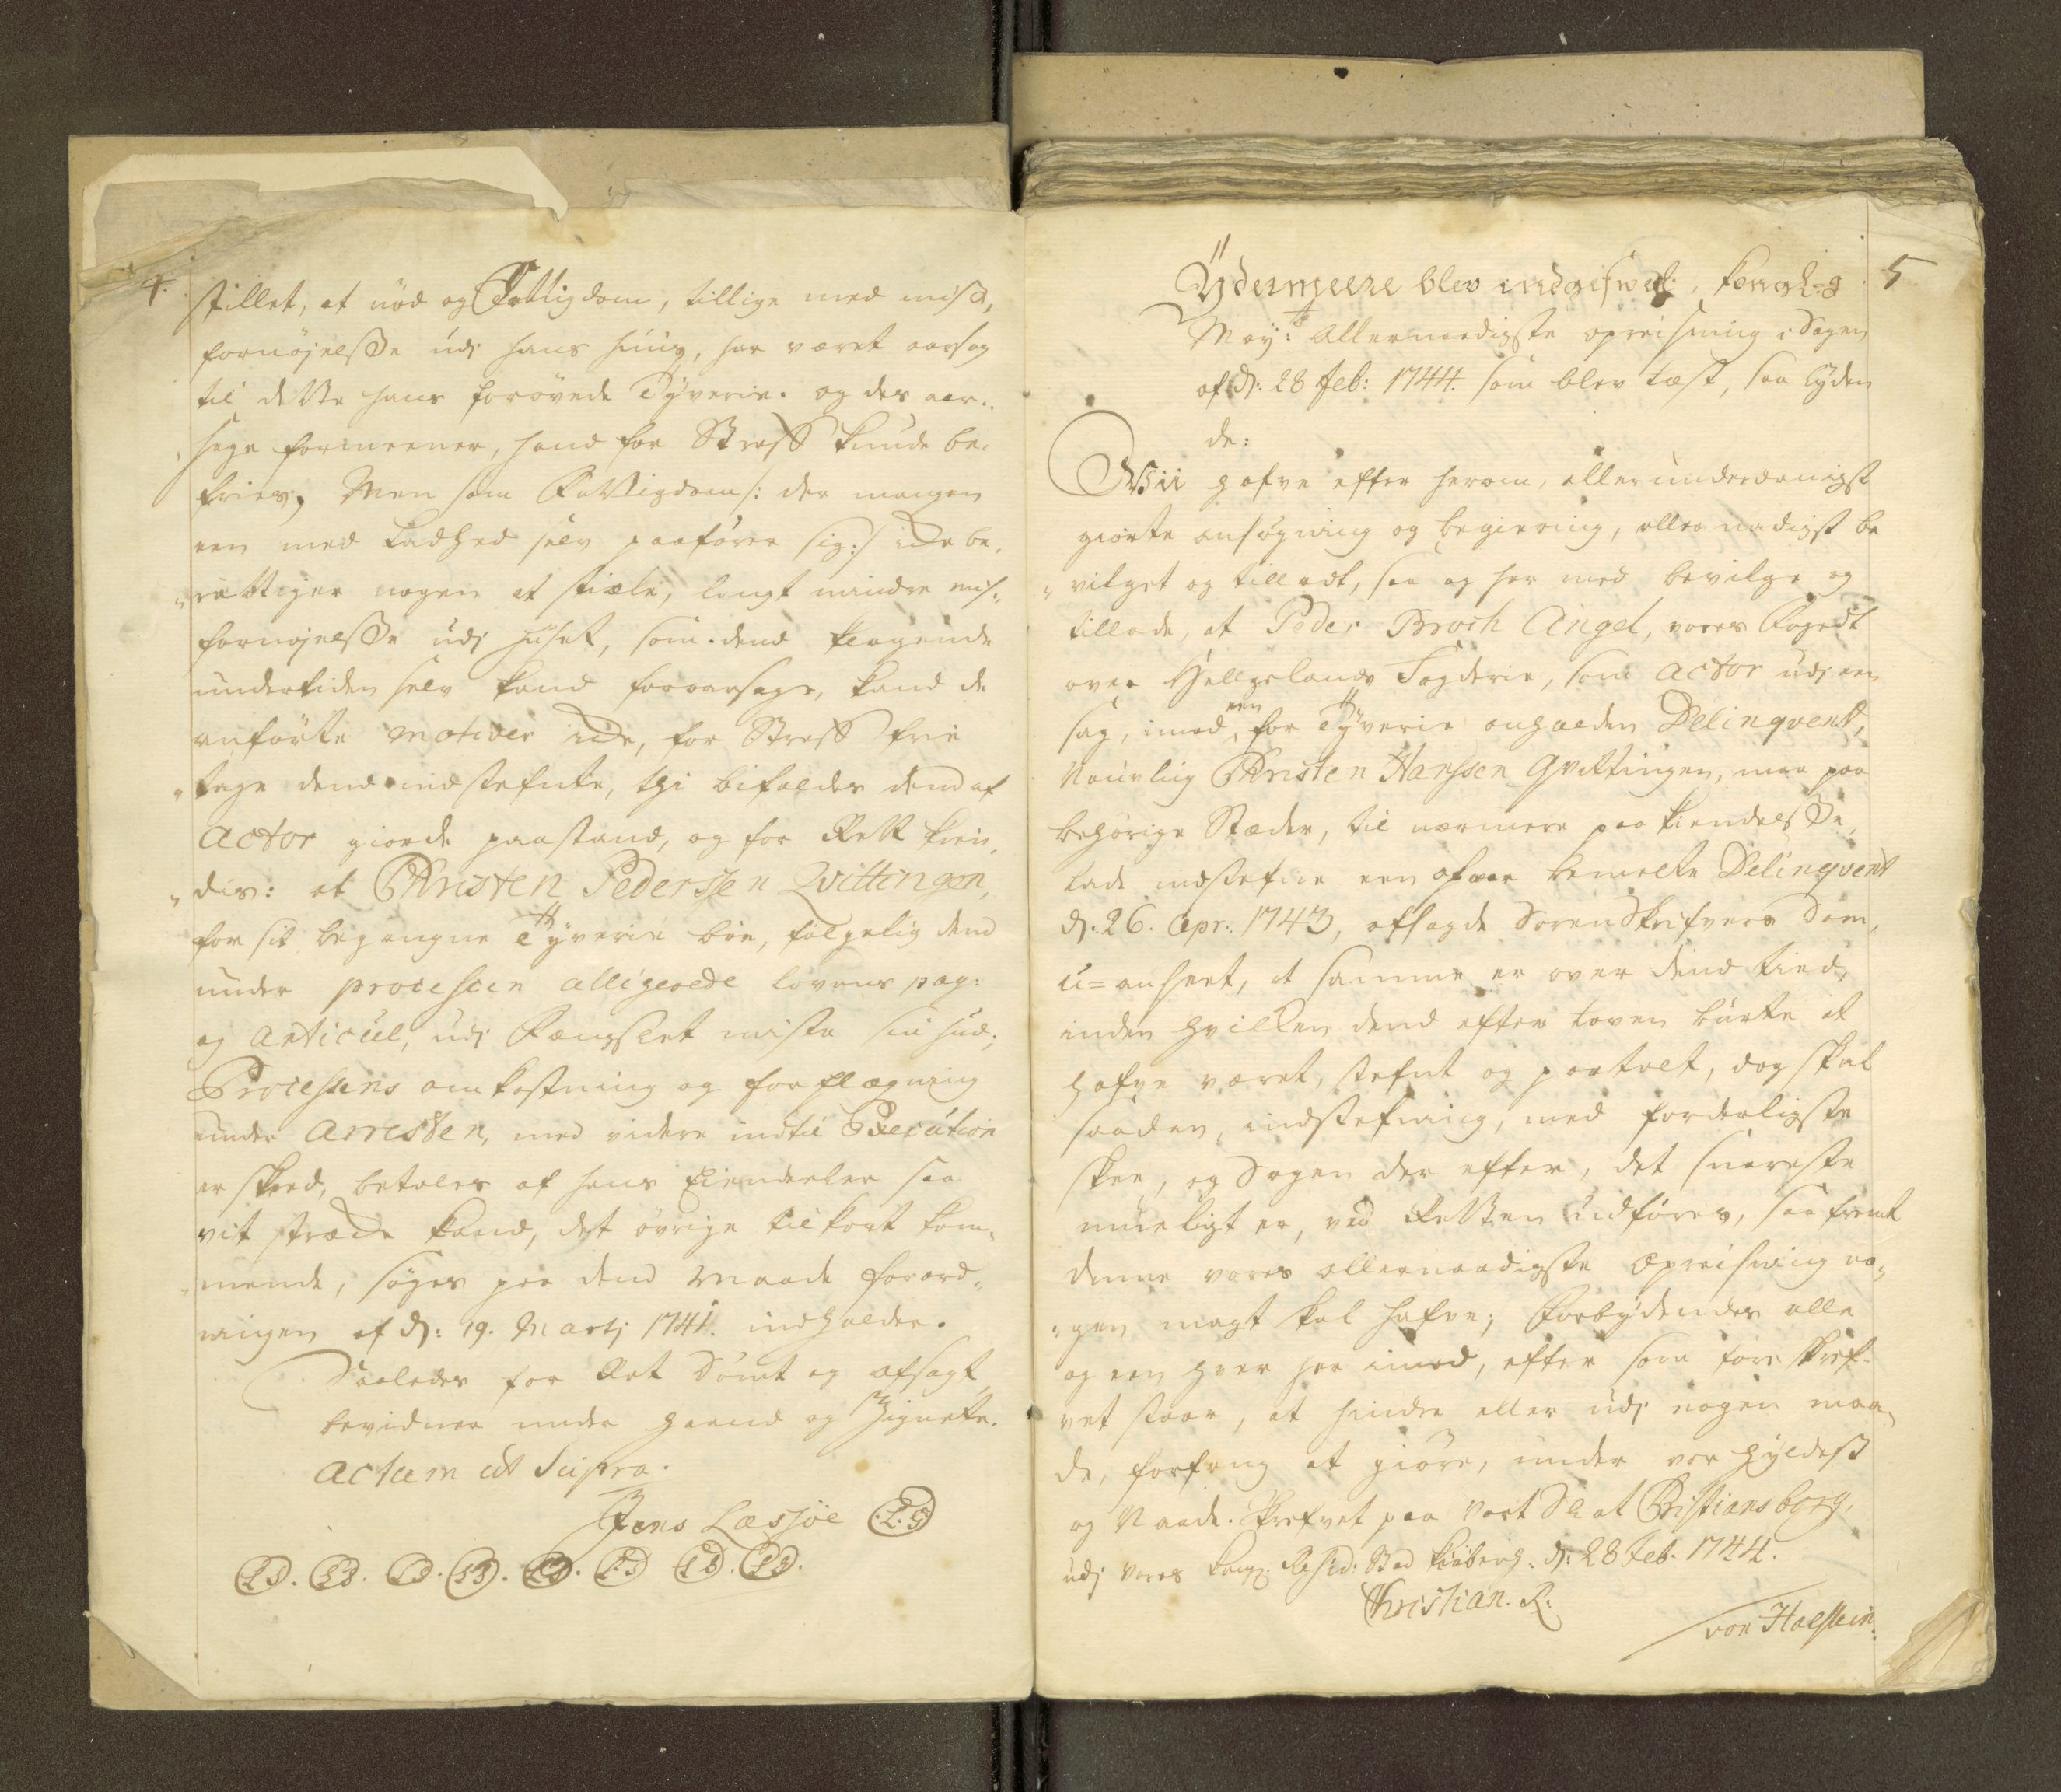 4.
stillet, at nød og Fattigdom, tillige med mis¬
fornøjelsse udj hans huus, har været aarsag
til dette hans forøvede Tyverie. og des aar„
„sage formeener, hand for Straff kunde be„
fries, Men som Fattigdom /: der mangen
een med Ladhed selv paafører sig :/ icke be„
„rettiger nogen at stiæle, langt mindre mis„
fornøjelsse udj huset, som dend klagende
undertiden selv kand foraarsage, kand de
anførte motiver icke, for Straff frie
„tage dend indstefnte, thi bifaldes dend af
Actor giorde paastand, og for Rett kien„
„dis: at Christen Pederssen Qvittingen,
for sit begangne Tyverie bør, følgelig dend
under processen alligerede lovens pag:
og Articul, udj Fængslet miste sin hud;
Processens omkostning og forflægning
under Arresten, med videre indtil Execution
er skeed, betales af hans Eiendeeler saa
vit strække kand, det øvrige tilkort kom„
„mende, søges paa dend Maade forord„
ningen af d: 19. Martj 1741. indholder.
Saaledes for Ret Dømt og afsagt
bevidner under haand og Zignete.
Actum ut Supra.
Jens Læssøe L.S
LS. LS. LS. LS. LS. LS LS. LS.
5
Ydermeere blev indgifvet, Kongl:
May:ts Allernaadigste opreisning i Sagen
af d: 28 Feb: 1744. som blev læst, saa lyden
de:
Wii hafve efter herom, allerunderdanigst
giorte ansøgning og begiering, allernaadigst be
„vilget og tilladt, saa og her med bevilge og
tillade, at Peder Broch Angel, vores Fogedt
over Helgelands Fogderie, som Actor udj een
sag, imod een for Tyverie anholden Delinqvent,
Naunlig Christen Hanssen Qvittingen, maa paa
behørige Stæder, til nærmere paakiendelsse,
lade indstefne een ofver bemelte Delinqvent
d: 26. Apr: 1743, afsagde Sorenskrifvers Dom,
u=anseet, at samme er over dend tied,
inden hvilken dend efter loven burte at
hafve været, stefnt og paatalt, dog skal
saadan, indstefning, med forderligste
skee, og Sagen der efter, det snareste
mueligt er, ved Retten udføres, saafremt
denne vores allernaadigste opreisning no„
„gen magt skal hafve; Forbydendes alle
og een hver her imod, efter som foreskref¬
vet staar, at hindre eller udj nogen maa„
de, forfang at giøre, under vor hyldest
og Naade. Skrefvet paa vort Slot Christiansborg,
udj vores Kongl: Resid: Stad Kiøbenh: d: 28 Feb. 1744.
Christian. R.
von Holstein.